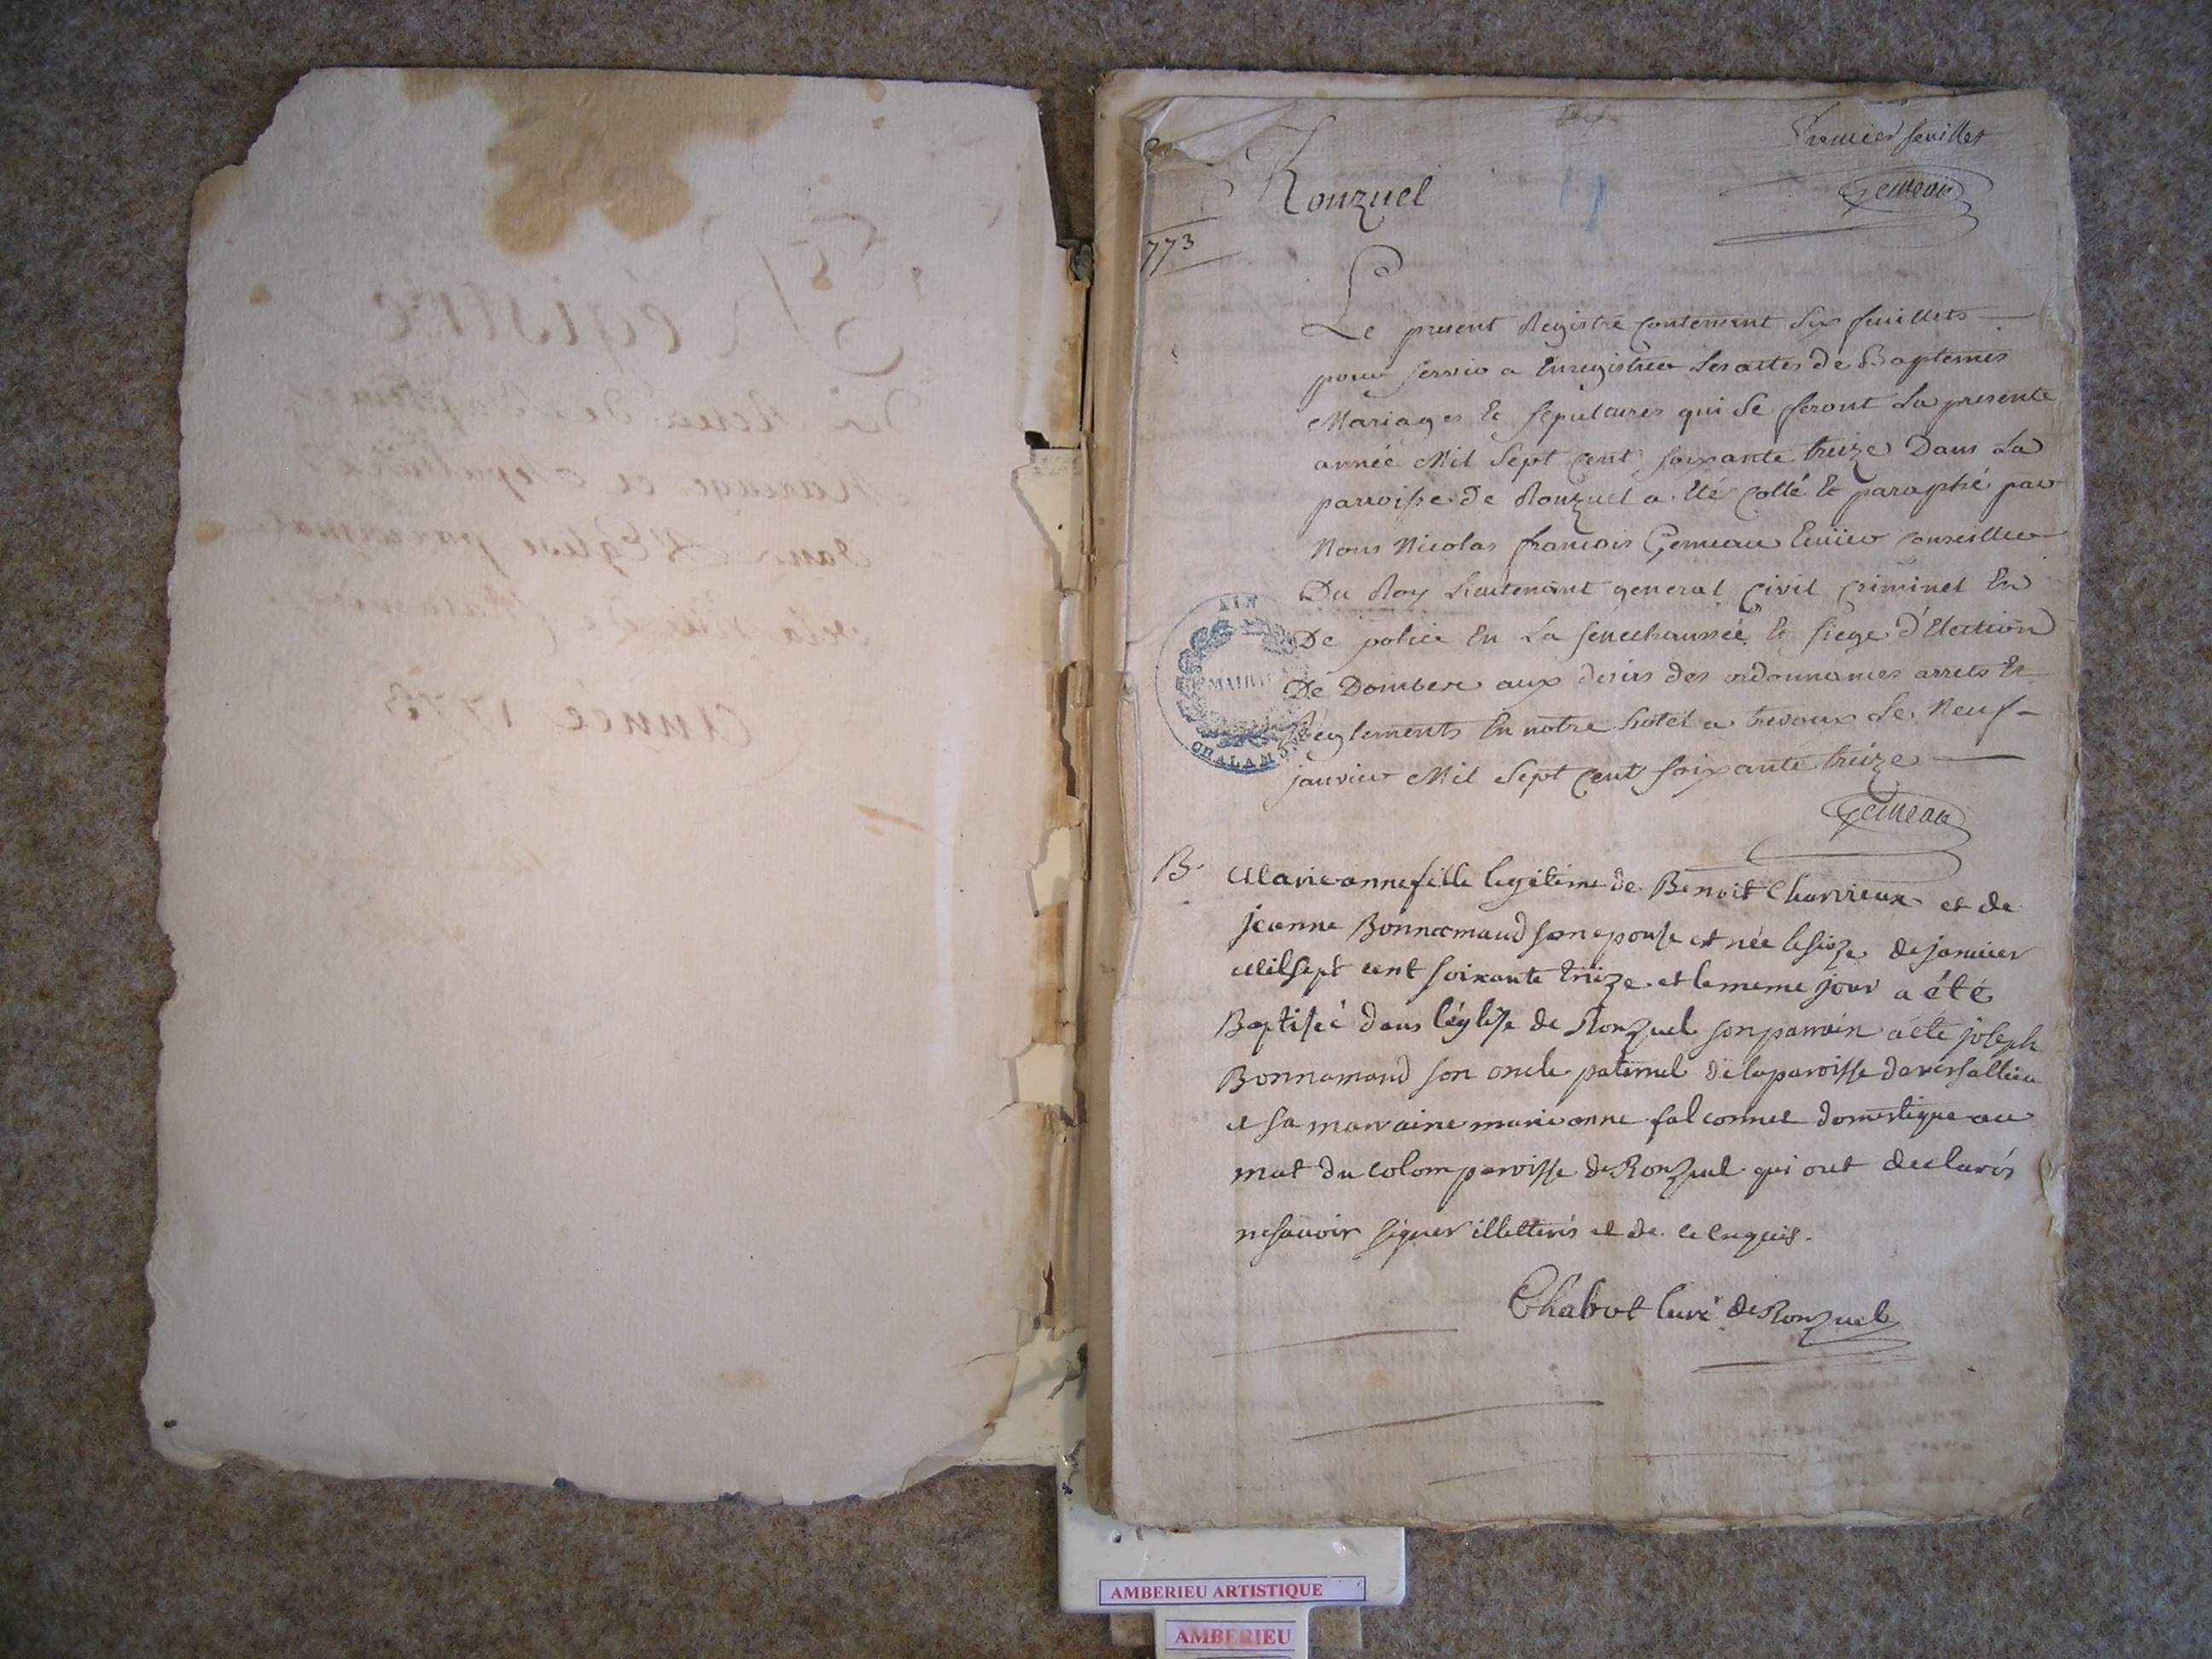 Registre
Des Actes de Baptemes
Mariages et Sepultures
dans L'Eglise paroissiale
de la
Année 1773
Premier feuillet
Gemeau
Ronzuel
1773
Le present Registre contenant Six feuillets
pour servir a Enregistrer Les actes de Baptemes
Mariages Et Sepultures qui Se feront La presente
année Mil Sept Cent soixante treize Dans La
parroisse De Ronzuel a Eté Cotté Et paraphé par
Nous Nicolas francois Gemeau Ecuier Conseiller
Du Roy Lieutenant general Civil Criminel Et
De police En La senechaussée Et siege d'Election
De Dombes aux desirs des ordonnances arrets Et
Reglements En notre hotel a trevoux Le Neuf
janvier Mil Sept Cent soixante treize
Gemeau
AIN
MAIRIE
CHALAMONT
B. Marieanne fille legitime de Benoit Charvieux et de
jeanne Bonnamand son epouse est née le seize de janvier
Milsept cent soixante treize et le meme jour a été
Baptisée dans l'églize de Ronzuel son parrain a ete joseph
Bonnamand son oncle paternel de la paroisse de versallieu
et sa marraine marieanne falconnet domestique au
mat du colom paroisse de Ronzuel qui ont declarés
ne savoir signer illettérés et de ce enquis.
Chabot Curé de Ronzuel
AMBERIEU ARTISTIQUE
AMBERIEU